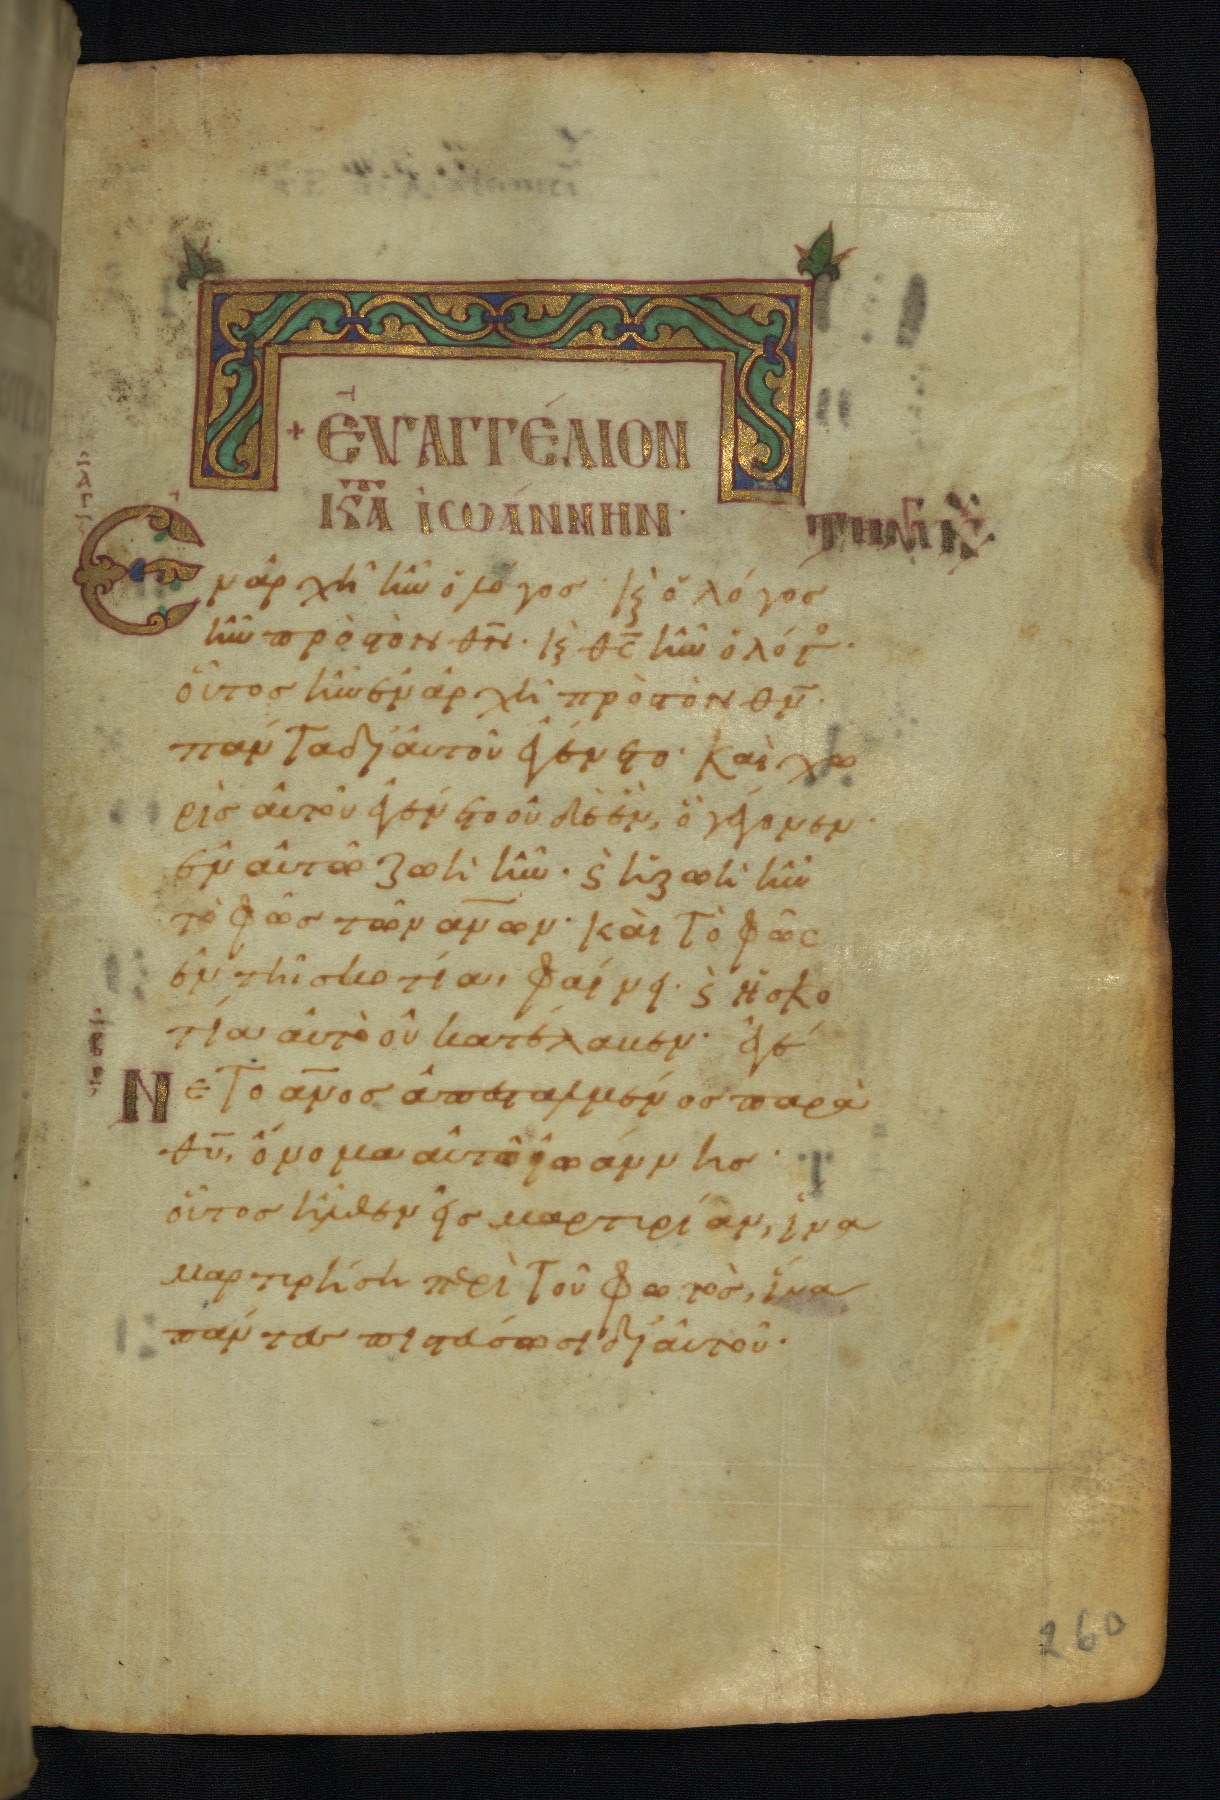 + ἘΥΑΓΓΈΛΙΟΝ
Κ̅Α̅ ἸΩΆΝΝΗΝ·
Ἐν ἀρχῆ ἦν ὁ λόγος· κ̀ ὁ λόγος
ἦν πρὸς τὸν θ̅ν̅· κ̀ θ̅ς̅ ἦν ὁ λόγο·
οὗτος ἦν ἐν ἀρχῆ πρὸς τὸν θ̅ν̅·
πάντα δι' ἀυτοῦ ἐγένετο· καὶ χω
ρὶς ἀυτοῦ ἐγένετο οὐδὲ ἓν, ὃ γέγονεν·
ἐν ἀυτῶ ζωὴ ἦν· κ̀ ἡ ζωὴ ἦν
τὸ φῶς τῶν α̅ν̅ων· καὶ τὸ φῶς
ἐν τῆ σκοτία, φαίνει· κ̀ ἡ σκο
τία ἀυτὸ οὐ κατέλαβεν· ἐγέ
Νετο α̅ν̅ος ἀπεσταλμένος παρὰ
θ̅υ̅, ὄνομα ἀυτῶ ἰωάννης·
οὗτος ἦλθεν εἰς μαρτιρίαν, ἵνα
μαρτιρήση περὶ τοῦ φωτὸς, ἵνα
πάντες πιστεύσωσι δι' ἀυτοῦ·
260